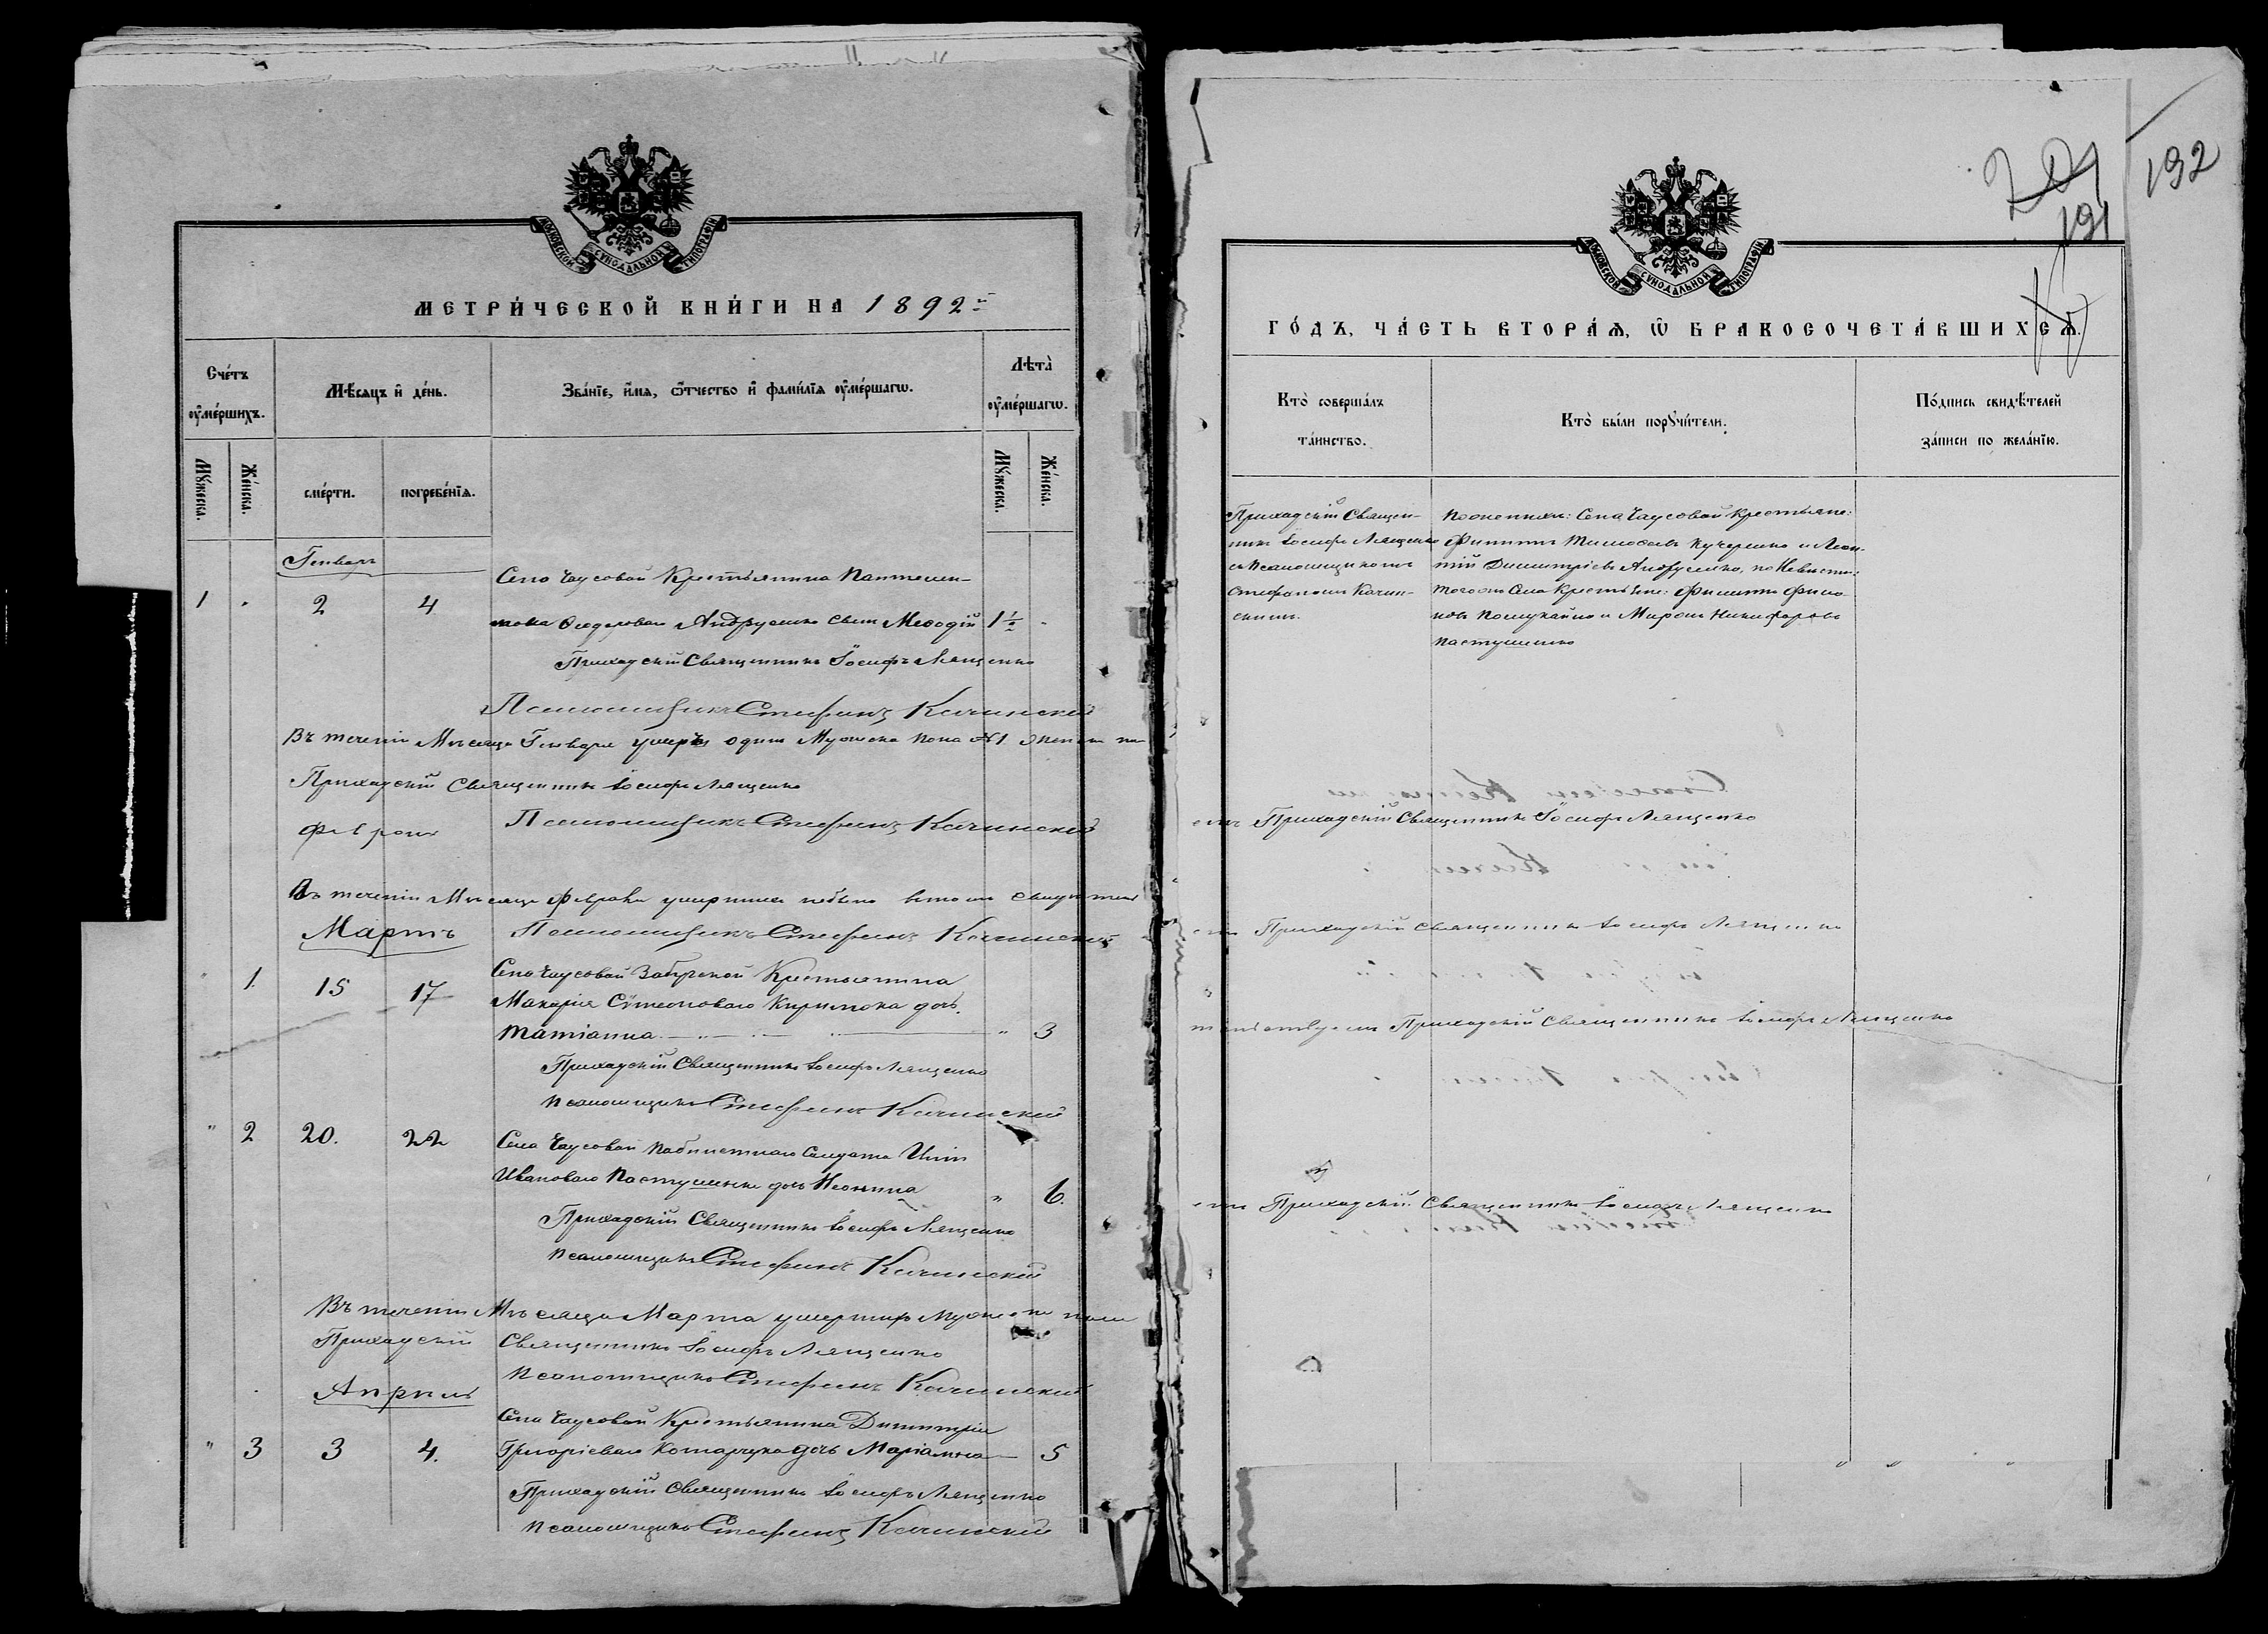 МОСКОВСКОЙ СУНОДАЛЬНОЙ ТИПОГРАФІИ
МЕТРИ́ЧЕСКОЙ КНИ́ГИ НА 1892
Сче́тъ ᲂу҆ме́ршихъ.
Мѣ́сяцъ и҆ де́нь.
Зва́нїе, и҆́мѧ, ѻ҆́тчество и҆ фами́лїѧ ᲂу҆ме́ршагѡ.
Лѣта̀ ᲂу҆ме́ршагѡ.
Мꙋ́жеска.
Же́нска.
сме́рти.
погребе́нїѧ.
Мꙋ́жеска.
Же́нска.
Генварь
Села Чаусовой Крестьянина Пантелей-
1 2 4
мона Ѳеодорова Андрусенко сынъ Меѳодій 1½
Приходскій Священникъ Іосифъ Лященко
Псаломщикъ Стефанъ Качинскій
Въ теченіи Мѣсяца Генваря умеръ одинъ Мужеска пола №1
Приходскій Священникъ Іосифъ Лященко
Февраль
Псаломщикъ Стефанъ Качинскій
Въ теченіи Мѣсяца Февраля умершихъ небыло въ томъ
Мартъ
Псаломщикъ Стефанъ Качинскій
Села Чаусовой Крестьянина
1. 15 17
Макарія Сѵмеоноваго дочь
Татіанна " 3
Приходскій Священникъ Іосифъ Лященко
Псаломщикъ Стефанъ Качинскій
" 2 20. 22
Села Чаусовой Солдата
Ивановаго Пастушенка дочь " 6.
Приходскій Священникъ Іосифъ Лященко
Псаломщикъ Стефанъ Качинскій
Въ теченіи Мѣсяца Марта умершихъ Мужеска пола
Приходскій Священникъ Іосифъ Лященко
Псаломщикъ Стефанъ Качинскій
Апрѣль
Села Чаусовой Крестьянина Димитрія
" 3 3 4.
Григоріеваго дочь Маріамна 5
Приходскій Священникъ Іосифъ Лященко
Псаломщикъ Стефанъ Качинскій
191
192
МОСКОВСКОЙ СУНОДАЛЬНОЙ ТИПОГРАФІИ
ГО́ДЪ, ЧА́СТЬ ВТОРА́Ѧ, Ѽ БРАКОСОЧЕТА́ВШИХСѦ.
Кто̀ соверша́лъ та́инство.
Кто̀ бы́ли порꙋчи́тели.
По́дпись свидѣ́телей за́писи по жела́нїю.
Приходскій Священ-
никъ Іосифъ Лященко
съ Псаломщикомъ
Стефаномъ Качин-
скимъ.
По женихѣ: Села Чаусовой Крестьяне:
Филиппъ Тимоѳеевъ Кучеренко и Леон-
тій Димитріевъ Андрусенко, по Невѣстѣ:
тогоже Села Крестьяне: Филиппъ
и Миронъ Никифоровъ
Пастушенко
Приходскій Священникъ Іосифъ Лященко
Приходскій Священникъ Іосифъ Лященко
Приходскій Священникъ Іосифъ Лященко
Приходскій Священникъ Іосифъ Лященко